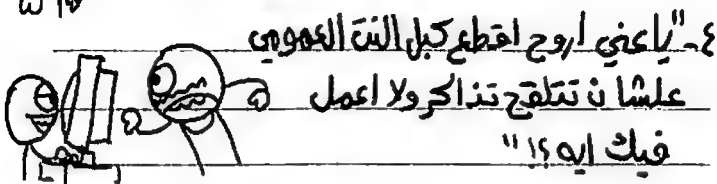 ٤-"ياعني اروح اقطع كبل النت العمومي
علشان تتلقح تذاكر ولا اعمل
فيك ايه ؟! "